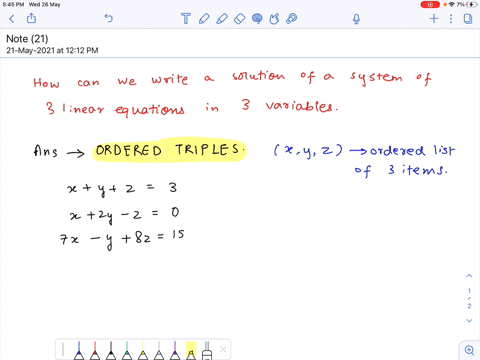 5:45 PM Wed 26 May
7%
Note (21)
21-May-2021 at 12:12 PM
How can we write a solution of a system of
3 linear equations in 3 variables.
Ans → ORDERED TRIPLES. (x, y, z) → ordered list
of 3 items.
x + y + z = 3
x + 2y - z = 0
7x - y + 8z = 15
1
/
2